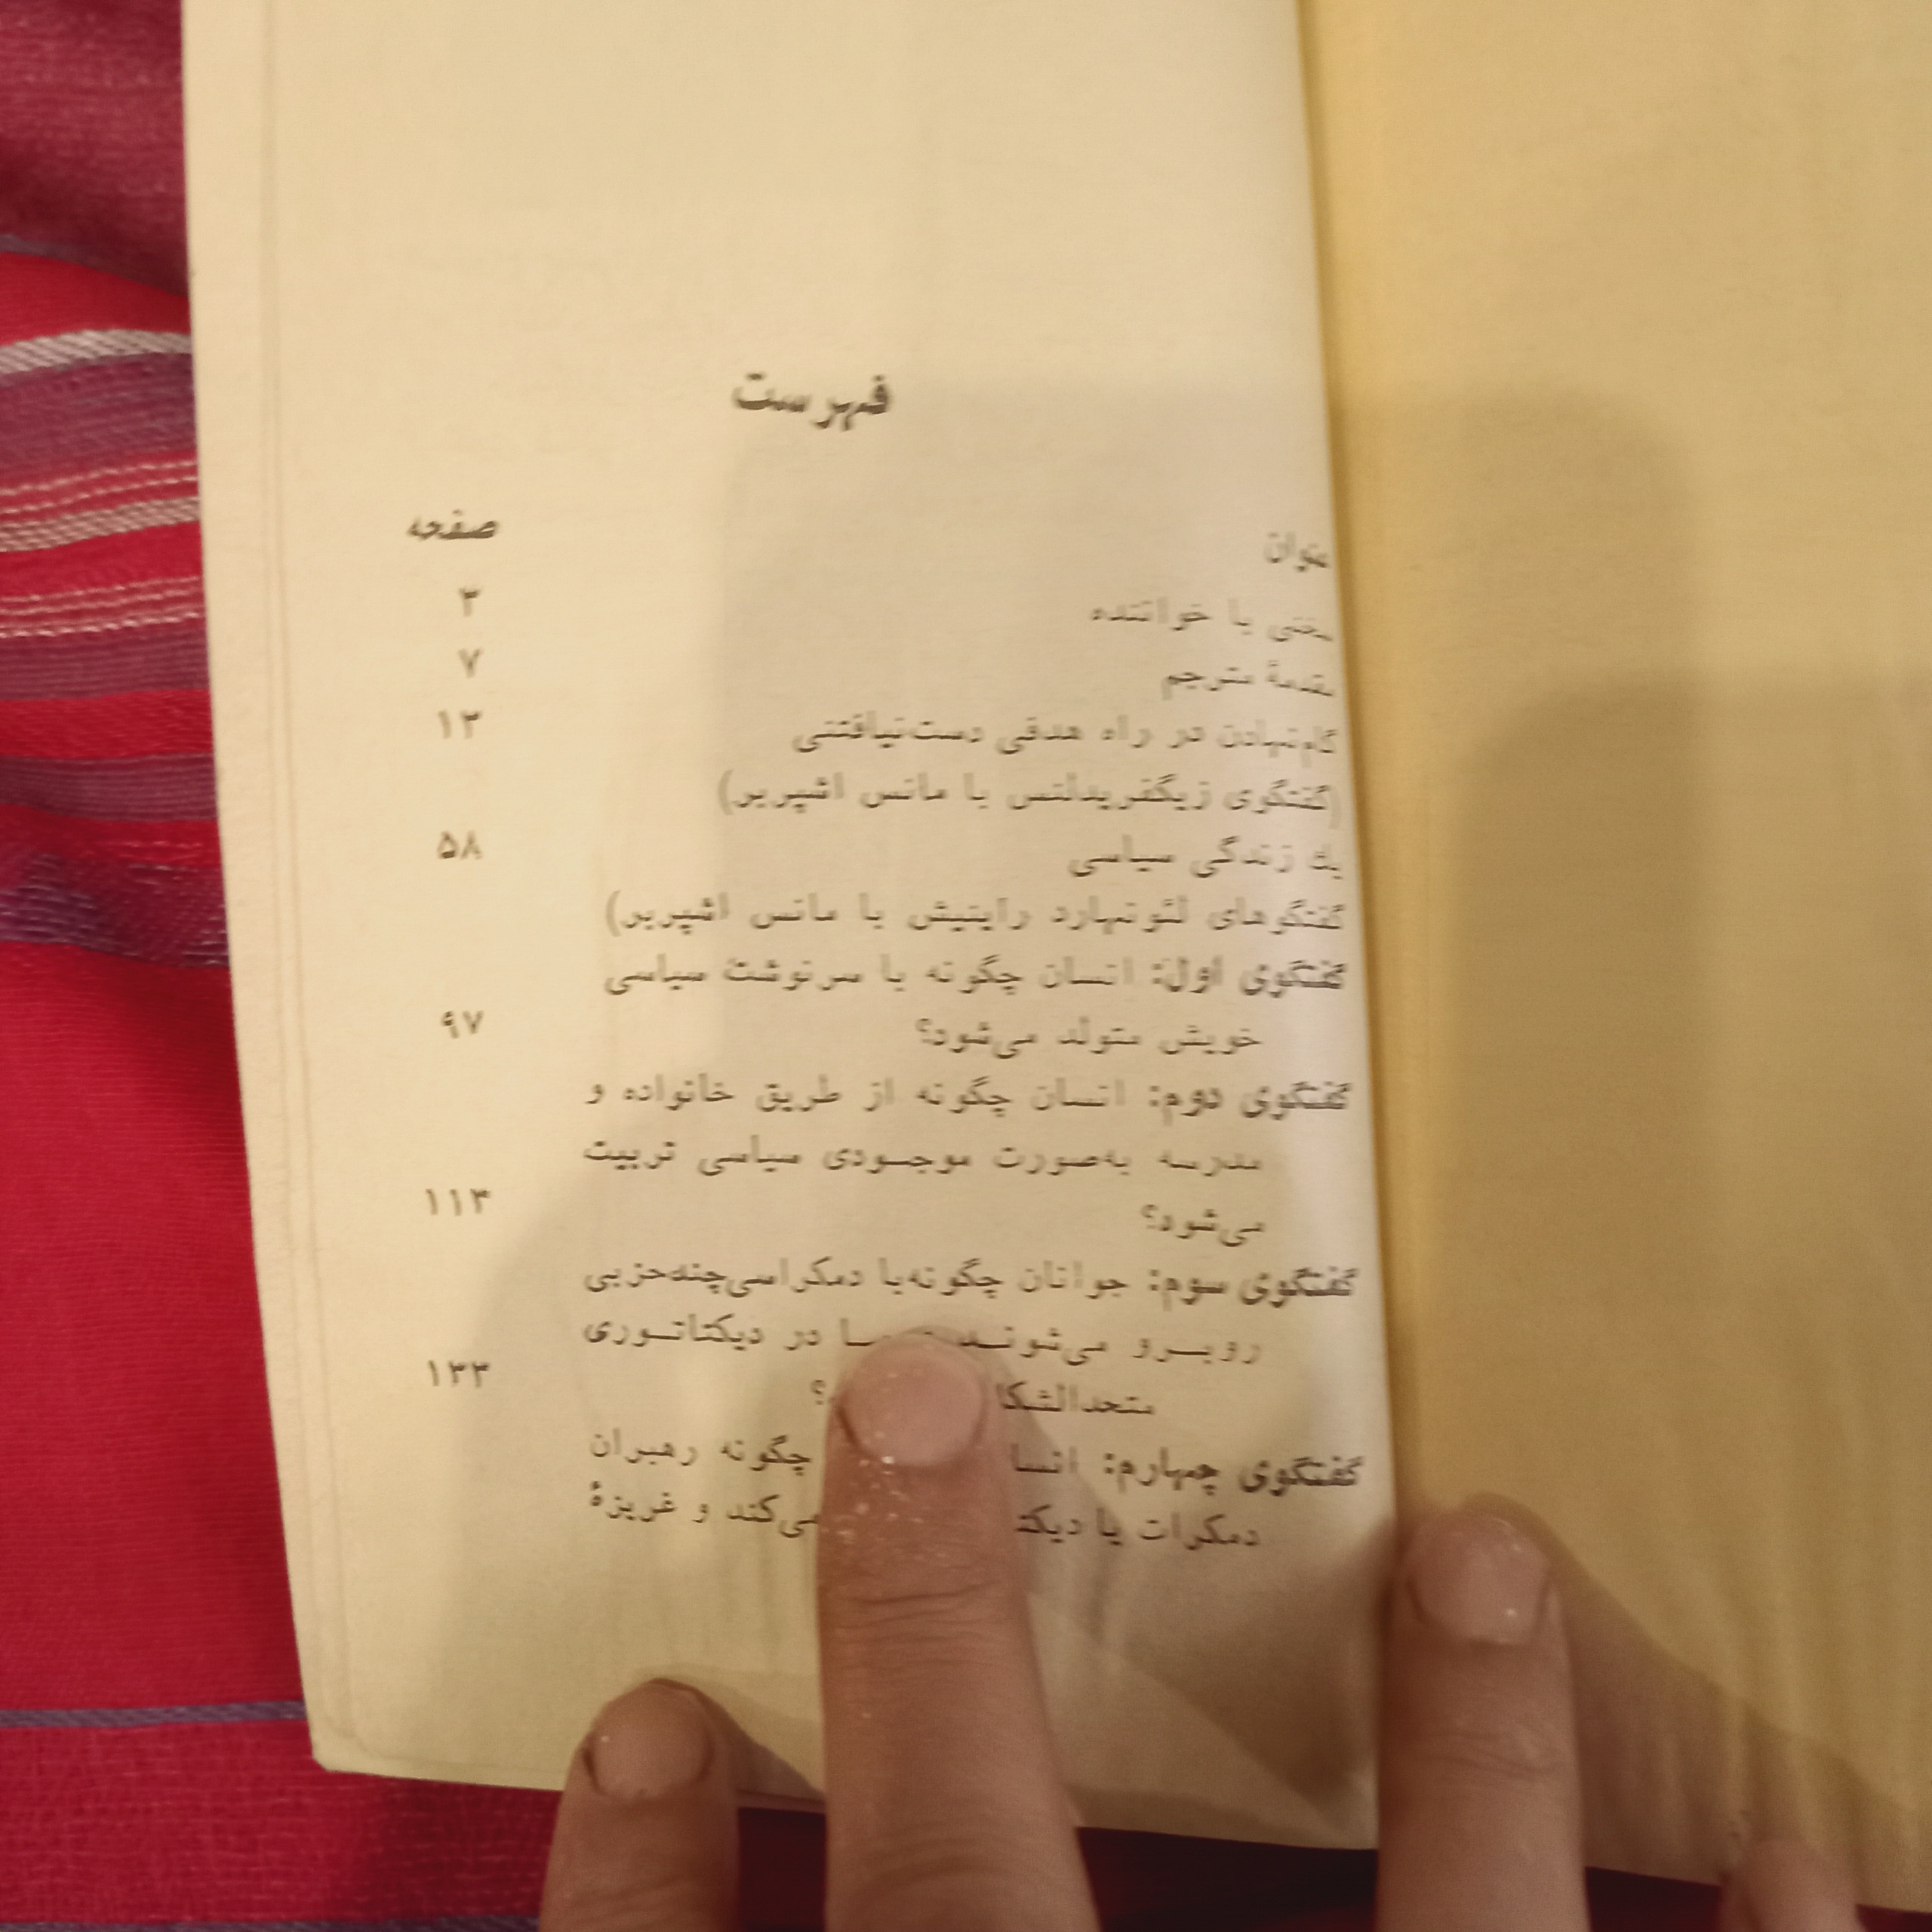 فهرست
عنوان صفحه
سخنی با خواننده ۳
مقدمهٔ مترجم ۷
گام‌نهادن در راه هدفی دست‌نیافتنی ۱۳
(گفتگوی زیگفریدلنتس با مانس اشپربر)
یک زندگی سیاسی ۵۸
گفتگوهای لئونهارد راینیش با مانس اشپربر)
گفتگوی اول: انسان چگونه با سرنوشت سیاسی
خویش متولد می‌شود؟ ۹۷
گفتگوی دوم: انسان چگونه از طریق خانواده و
مدرسه به‌صورت موجودی سیاسی تربیت
می‌شود؟ ۱۱۳
گفتگوی سوم: جوانان چگونه‌با دمکراسی‌چندحزبی
روبرو می‌شوند در دیکتاتوری
؟ ۱۳۳
گفتگوی چهارم: چگونه رهبران
دمکرات یا می‌کند و غریزهٔ